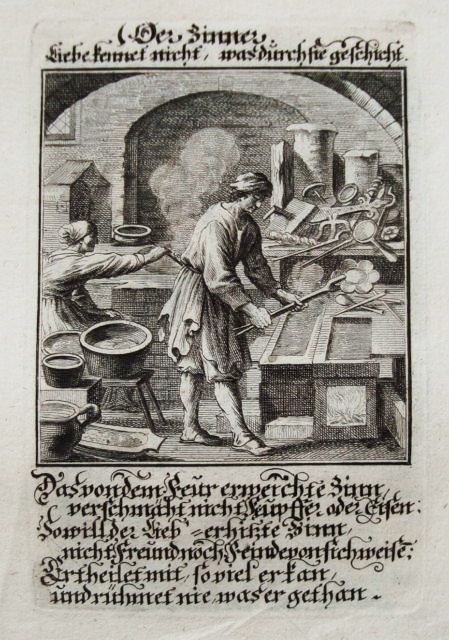 Der Zinner.
Liebe kennet nicht, was durch sie geschicht.
Das von dem Feur erweichte Zinn,
verschmäht nicht Kupffer oder Eisen:
So will der Lieb-erhitzte Sinn,
nicht Freünd noch Feinde von sich weisen;
Er theilet mit, so viel er kan,
und rühmet nie was er gethan.